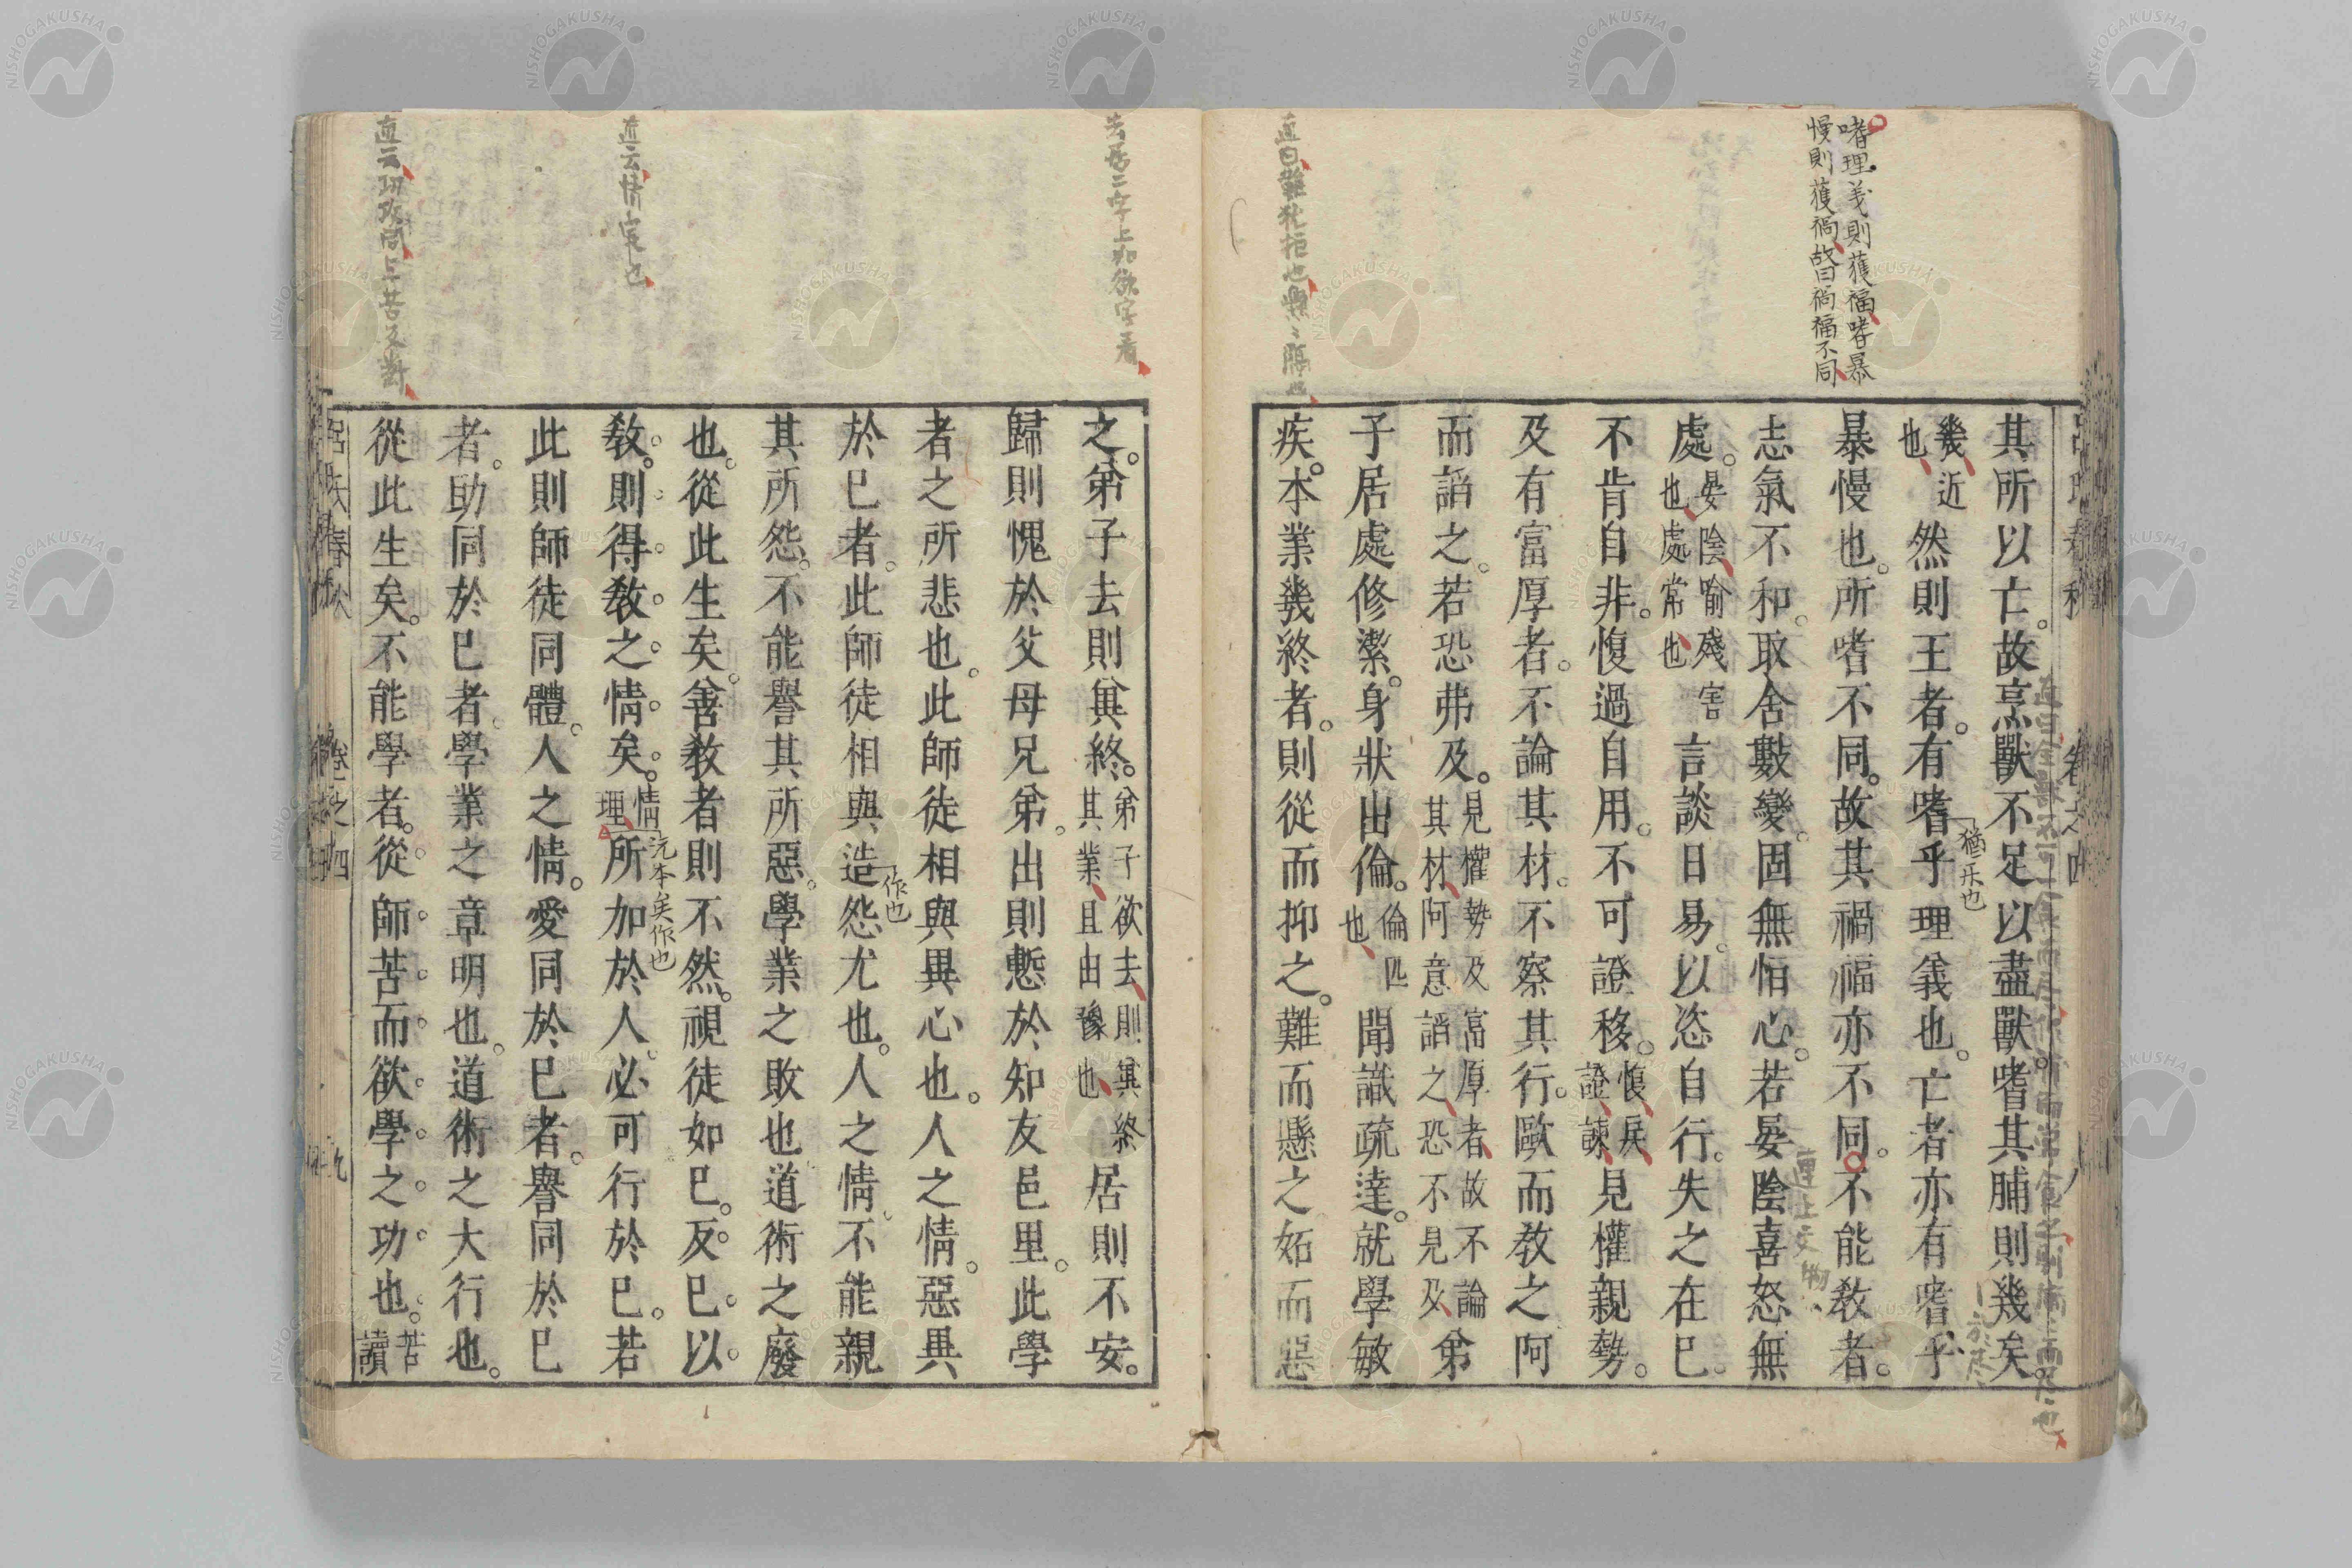 嗜理義則獲福嗜暴
慢則獲禍故曰禍福不同
其所以亡。故烹獸不足以盡獸。嗜其脯則幾矣。
幾近
也
然則王者。有嗜乎理義也。亡者亦有嗜乎
猶乐也
暴慢也。所嗜不同。故其禍福亦不同。不能教者。
志氣不和。取舍數變。固無恒心。若晏陰喜怒無
處。
晏陰喻殘害
也處常也
言談日易。以恣自行。失之在已。
不肯自非。愎過自用。不可證移。
愎戾
證諫
見權親勢。
及有富厚者。不論其材。不察其行。敺而教之阿
而諂之。若恐弗及。
見權勢及富厚者故不論
其材阿意諂之恐不見及
弟
子居處修潔。身狀出倫。
倫匹
也
聞識疏達。就學敏
疾。本業幾終者。則從而抑之。難而懸之妬而惡
去居二字上加欲字看
之。弟子去則兾終。
弟子欲去則兾終
其業且由豫也
居則不安。
歸則愧於父母兄弟。出則慙於知友邑里。此學
者之所悲也。此師徒相與異心也。人之情。惡異
於已者。此師徒相與造怨尤也。人之情不能親
作也
其所怨。不能譽其所惡。學業之敗也道術之廢
也。從此生矣。善教者則不然。視徒如已。反已以
教。則得教之情矣。
情
理
所加於人必可行於已。若
元本矣作也
此則師徒同體。人之情。愛同於已者。譽同於已
者。助同於已者。學業之章明也。道術之大行也。
從此生矣。不能學者。從師苦而欲學之功也。
苦
讀
呂氏春秋
卷之四
九
NISHOGAKUSHA